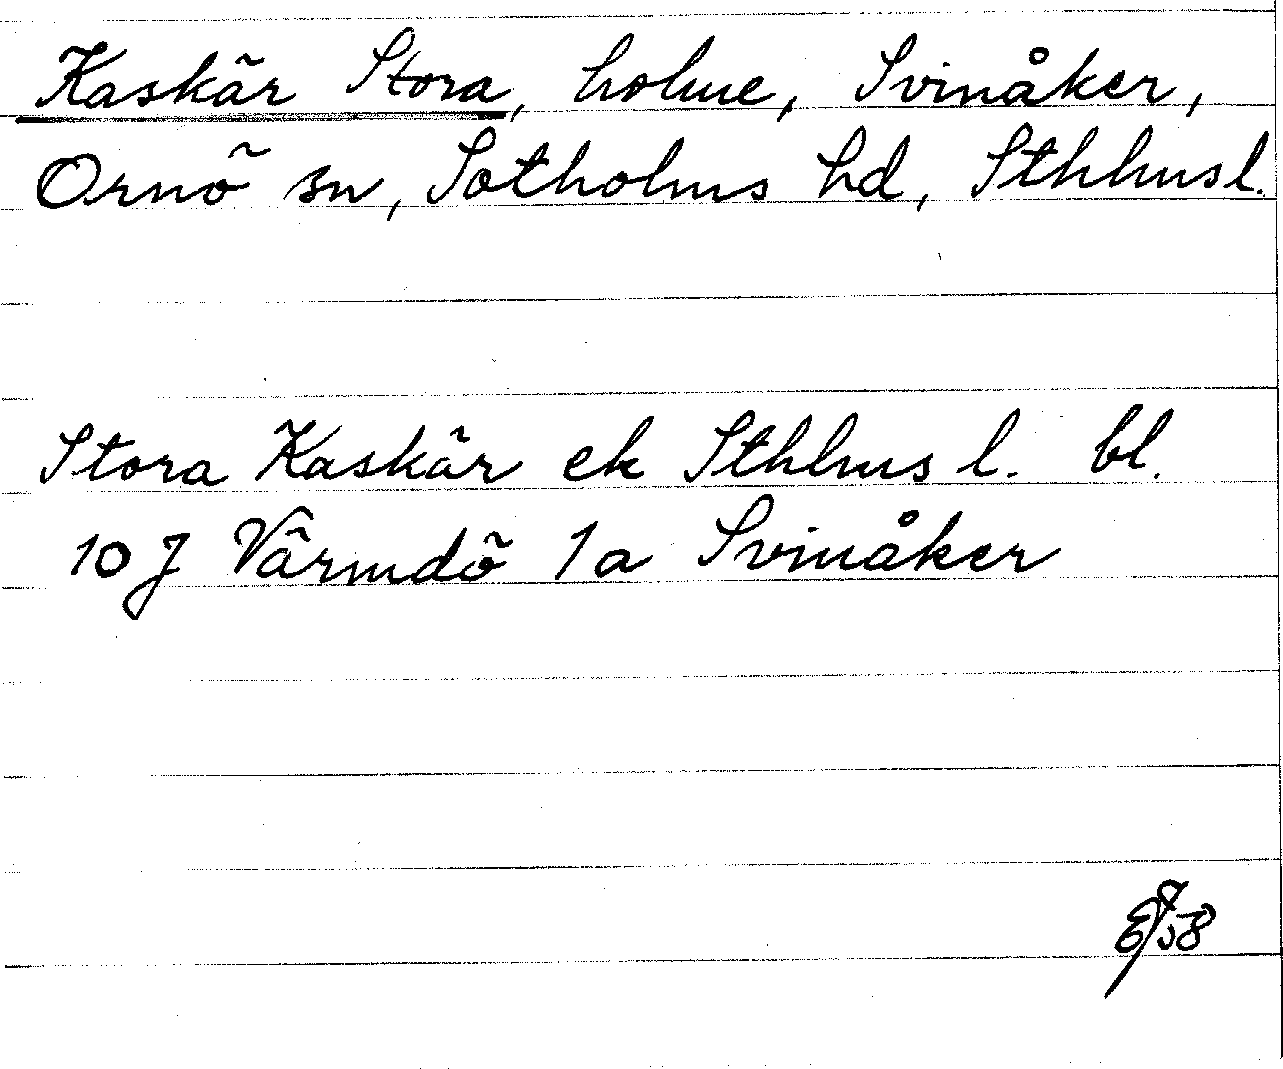 Kaskär Stora, holme, Svinåker,
Ornö sn, Sotholms hd, Sthlmsl.
Stora Kaskär ek Sthlms l. bl.
10 J Värmdö 1a Svinåker